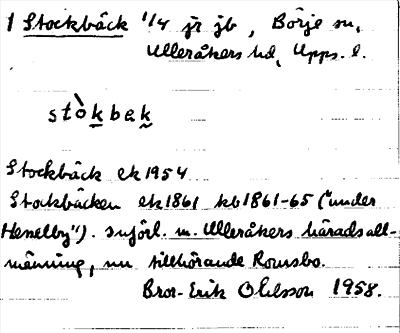 1 Stockbäck 1/4 jr jb, Börje sn,
Ulleråkers hd, Upps. l.
stòkbek
Stockbäck ek 1954
Stockbäcken ek 1861 kb 1861-65 ("under
Henellby"). snjörl. m. Ulleråkers häradsall-
männing, nu tillhörande Romsbo.
Bror-Erik Ohlsson 1958.